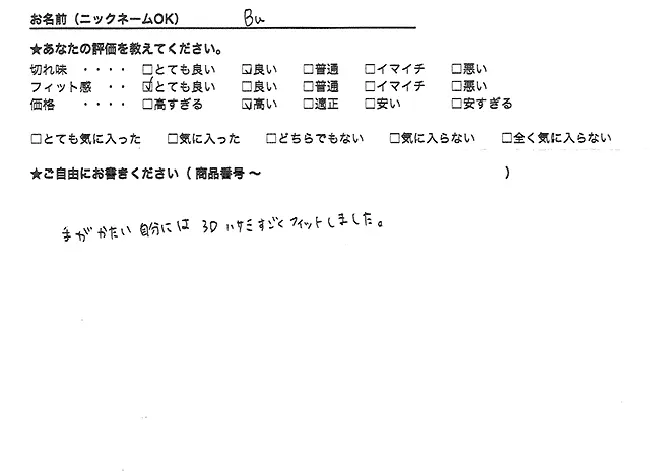 お名前（ニックネームOK） Bu
★あなたの評価を教えてください。
切れ味 ・・・・ □とても良い ☑良い □普通 □イマイチ □悪い
フィット感 ・・ ☑とても良い □良い □普通 □イマイチ □悪い
価格 ・・・・ □高すぎる ☑高い □適正 □安い □安すぎる
□とても気に入った □気に入った □どちらでもない □気に入らない □全く気に入らない
★ご自由にお書きください（ 商品番号 〜 ）
手がかたい自分には3Dハサミすごくフィットしました。